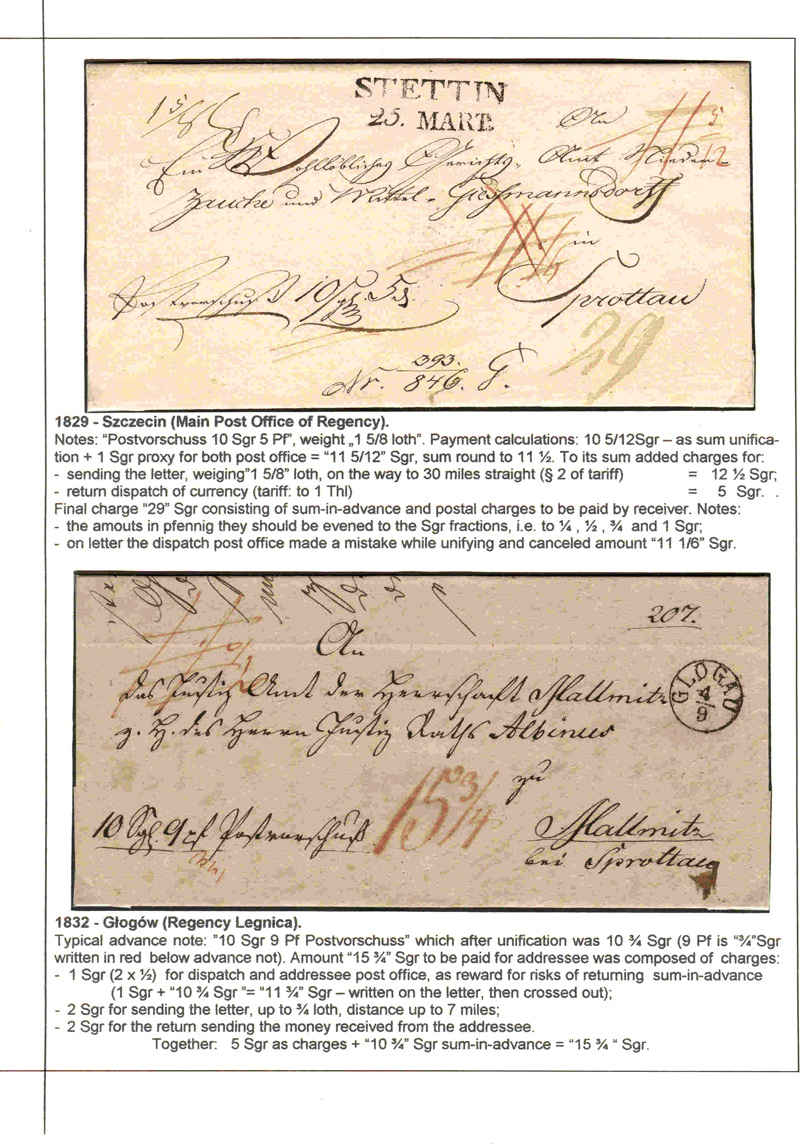 STETTIN
25. MART.
1 5/8
An
5
12
Ein Wohllöbliches Gerichts-Amt Nieder-
Zauche und Mittel-Giesmannsdorf
in
Postvorschuß 10 Sgl 5
Sprottau
29
393.
Nr. 846. G.
1829 - Szczecin (Main Post Office of Regency).
Notes: "Postvorschuss 10 Sgr 5 Pf", weight „1 5/8 loth". Payment calculations: 10 5/12Sgr – as sum unifica-
tion + 1 Sgr proxy for both post office = "11 5/12" Sgr, sum round to 11 ½. To its sum added charges for:
- sending the letter, weiging"1 5/8" loth, on the way to 30 miles straight (§ 2 of tariff) = 12 ½ Sgr;
- return dispatch of currency (tariff: to 1 Thl) = 5 Sgr. .
Final charge "29" Sgr consisting of sum-in-advance and postal charges to be paid by receiver. Notes:
- the amouts in pfennig they should be evened to the Sgr fractions, i.e. to ¼ , ½ , ¾ and 1 Sgr;
- on letter the dispatch post office made a mistake while unifying and canceled amount "11 1/6" Sgr.
207.
An
das Justiz Amt der Herrschaft Mallmitz
GLOGAU
4
9
z. H. des Herrn Justiz Raths Albinus
zu
15 3/4
10 Sgl. 9 pf Postvorschuß
Mallmitz
bei Sprottau
1832 - Głogów (Regency Legnica).
Typical advance note: "10 Sgr 9 Pf Postvorschuss" which after unification was 10 ¾ Sgr (9 Pf is "¾"Sgr
written in red below advance not). Amount "15 ¾" Sgr to be paid for addressee was composed of charges:
- 1 Sgr (2 x ½) for dispatch and addressee post office, as reward for risks of returning sum-in-advance
(1 Sgr + "10 ¾ Sgr "= "11 ¾" Sgr – written on the letter, then crossed out);
- 2 Sgr for sending the letter, up to ¾ loth, distance up to 7 miles;
- 2 Sgr for the return sending the money received from the addressee.
Together: 5 Sgr as charges + "10 ¾" Sgr sum-in-advance = "15 ¾ " Sgr.